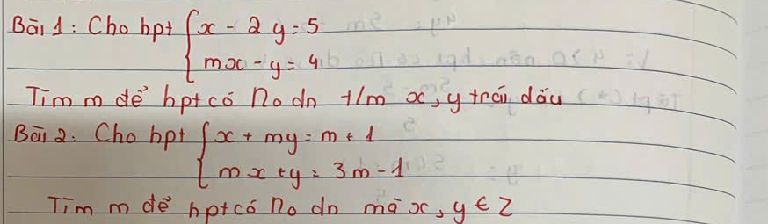 Bài 1: Cho hpt { x - 2y = 5
mx - y = 4
Tìm m để hpt có no dn t/m x, y trái dấu
Bài 2: Cho hpt { x + my = m + 1
mx + y = 3m - 1
Tìm m để hpt có no dn mà x, y ∈ Z